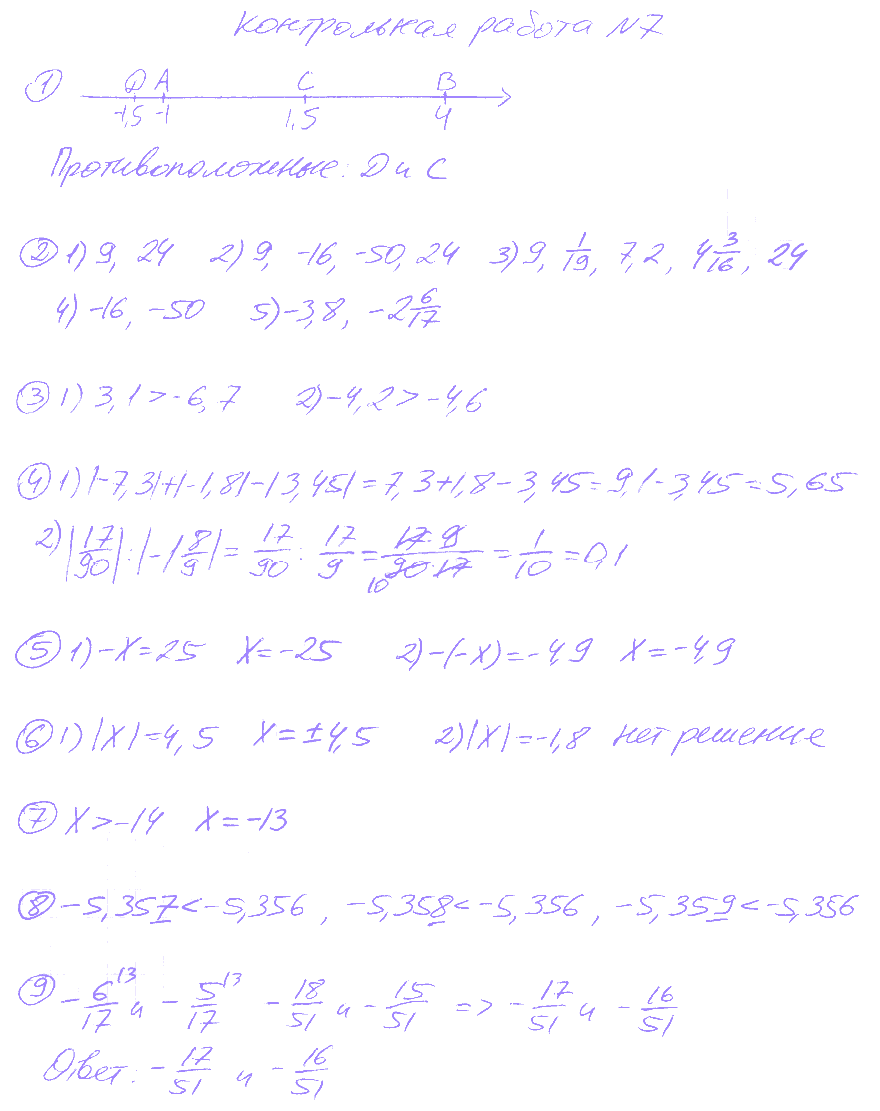 Контрольная работа №7
① D A C B
-1,5 -1 1,5 4
Противоположные: D и C
② 1) 9, 24 2) 9, -16, -50, 24 3) 9, 1/19, 7,2, 4 3/16, 24
4) -16, -50 5) -3,8, -2 6/17
③ 1) 3,1 > -6,7 2) -4,2 > -4,6
④ 1) |-7,3|+|-1,8|-|3,45| = 7,3+1,8-3,45 = 9,1-3,45 = 5,65
2) |17/90| : |-1 8/9| = 17/90 : 17/9 = 17·9/90·17 = 1/10 = 0,1
10
⑤ 1) -x = 25 x = -25 2) -(-x) = -4,9 x = -4,9
⑥ 1) |x| = 4,5 x = ±4,5 2) |x| = -1,8 нет решение
⑦ x > -14 x = -13
⑧ -5,357 < -5,356, -5,358 < -5,356, -5,359 < -5,356
⑨ -6/17 \3 и -5/17 \3 -18/51 и -15/51 => -17/51 и -16/51
Ответ: -17/51 и -16/51